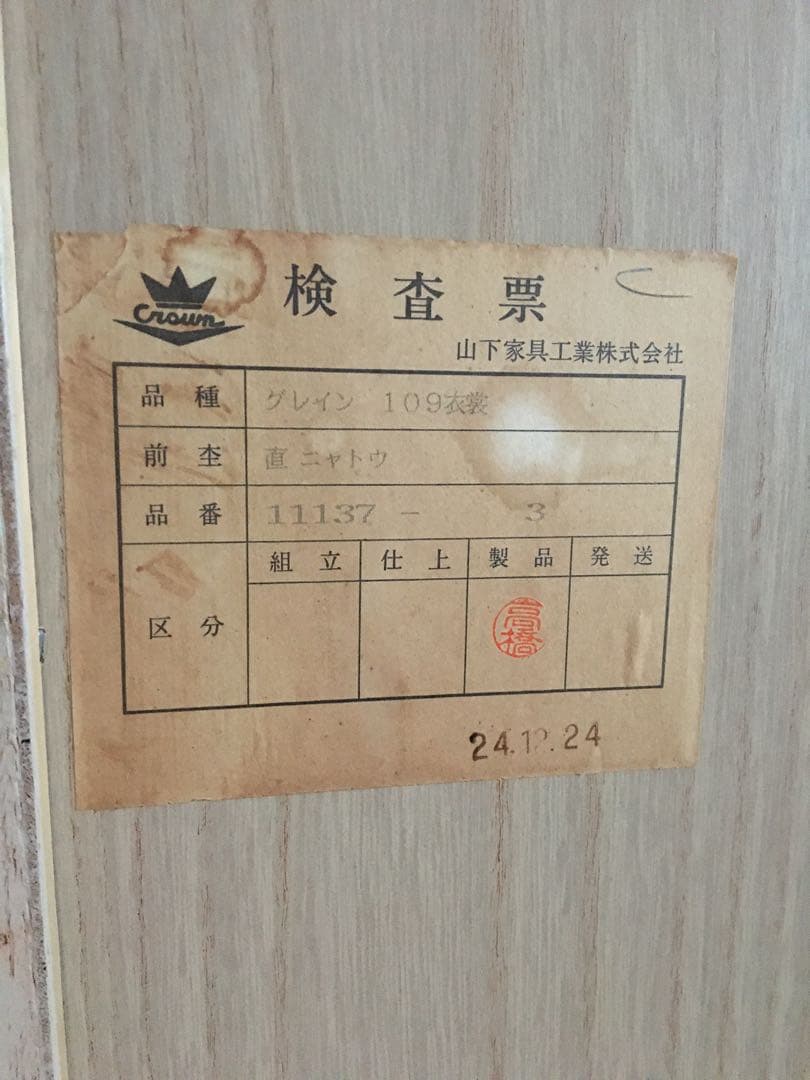 Crown
検査票
山下家具工業株式会社
品種 グレイン 109衣裳
前杢 直 ニャトウ
品番 11137 - 3
区分 組立 仕上 製品 発送
高橋
24.12.24